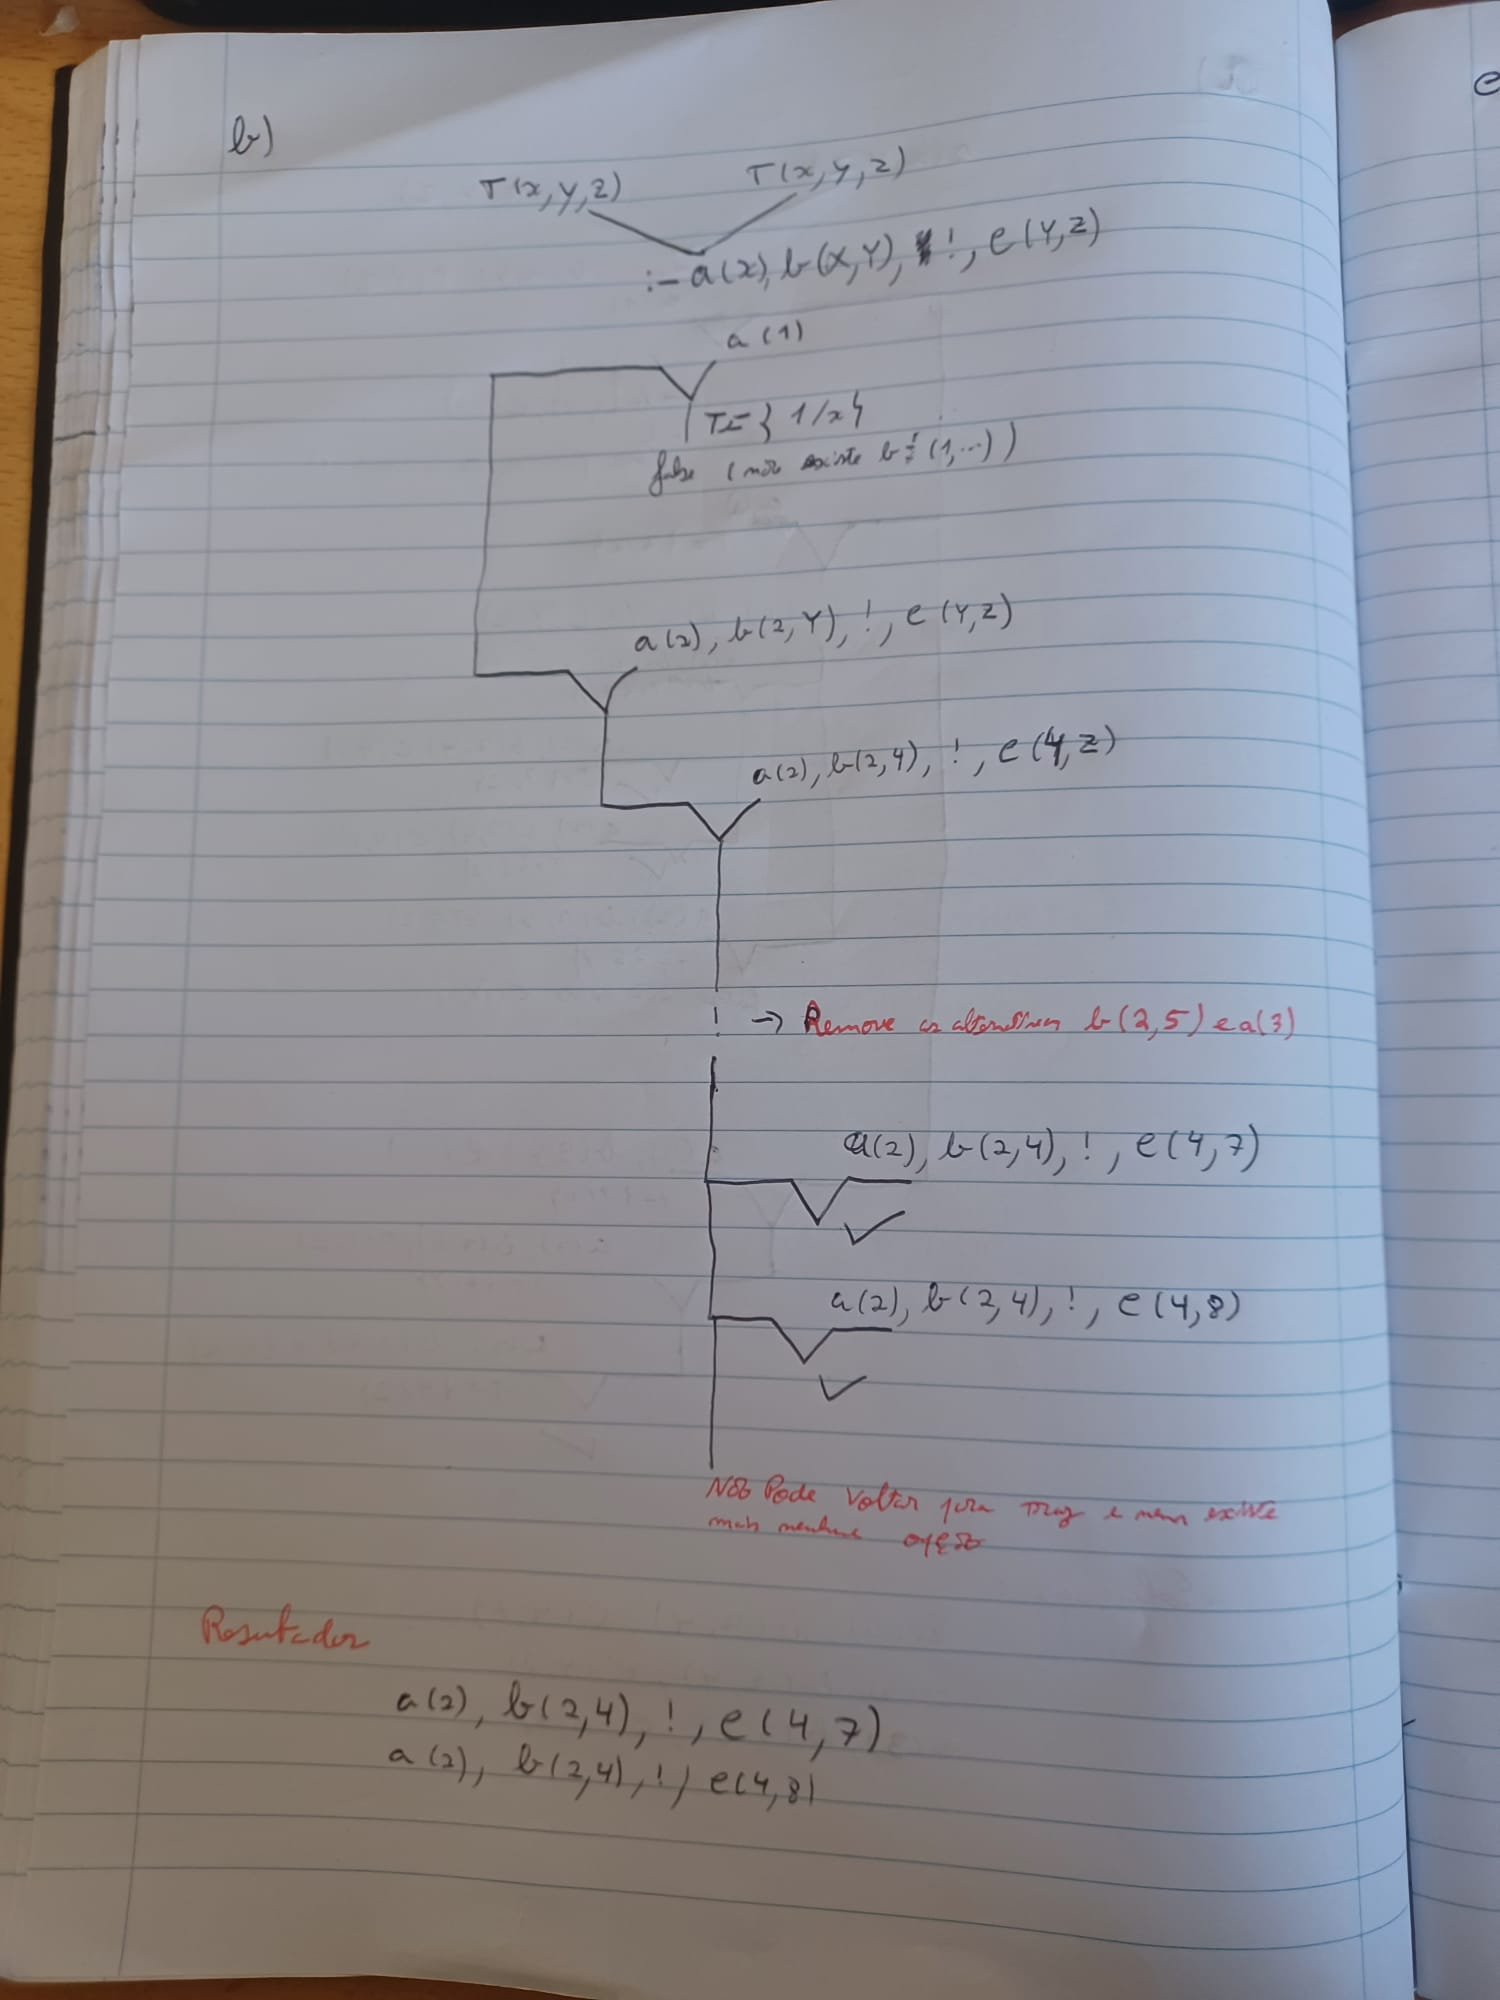 b)
T(x,y,z) T(x,y,z)
:- a(x), b(X,Y), !, c(Y,Z)
a(1)
1/x}
false (não existe b (1,...))
a(2), b(2,Y), !, c(Y,Z)
a(2), b(2,4), !, c(4,Z)
! → Remove as alternativas b(2,5) e a(3)
a(2), b(2,4), !, c(4,7)
a(2), b(2,4), !, c(4,8)
Não Pode Voltar para e nem existe
mais nenhuma opção
Resultados
a(2), b(2,4), !, c(4,7)
a(2), b(2,4), !, c(4,8)